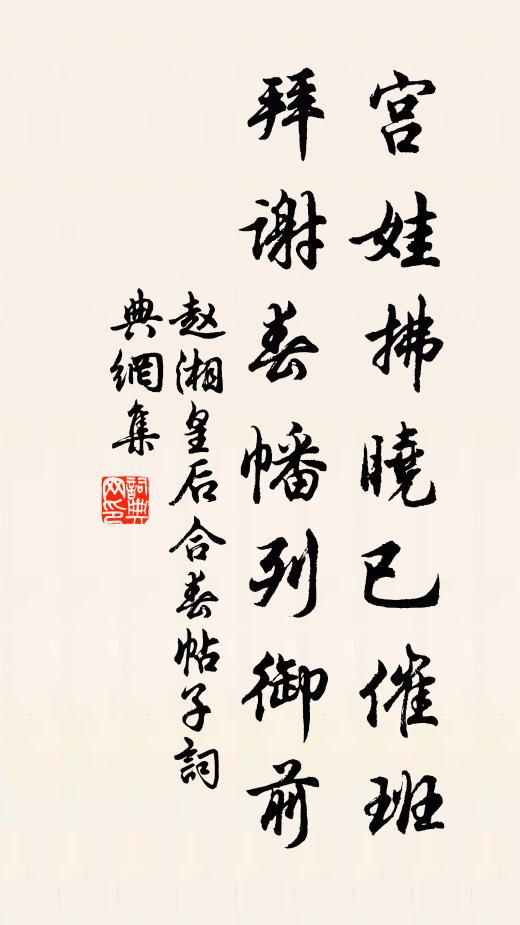 宫娃拂曉已催班
拜谢春幡列御前
赵湘皇后合春帖子詞
典網集
詞典网印